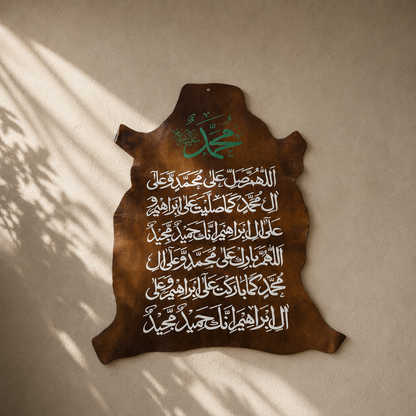 محمد ﷺ
اللهم صل على محمد وعلى
آل محمد كما صليت على إبراهيم و
على آل إبراهيم إنك حميد مجيد
اللهم بارك على محمد وعلى آل
محمد كما باركت على إبراهيم وعلى
آل إبراهيم إنك حميد مجيد